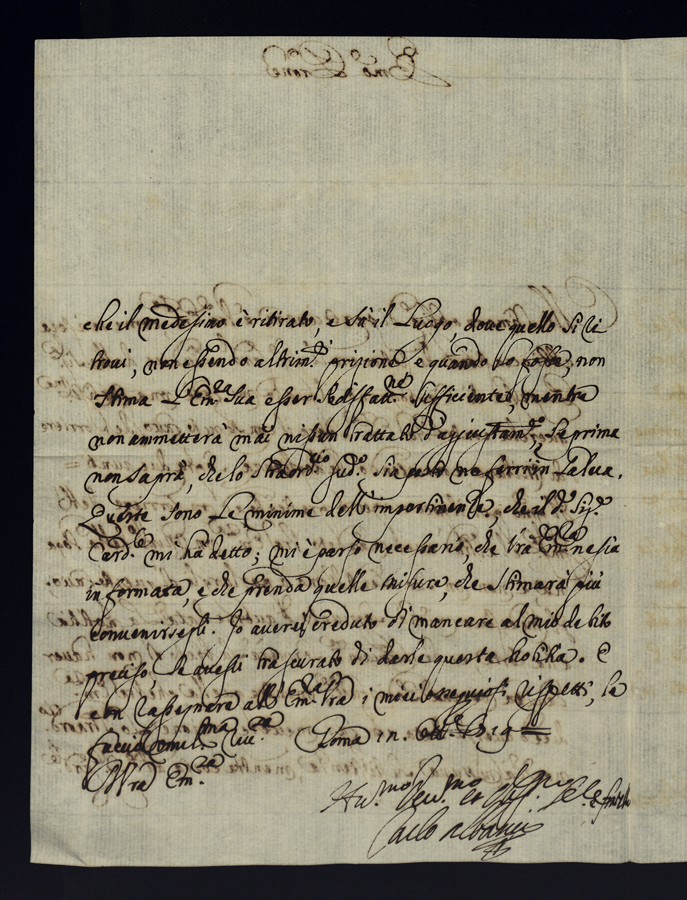 che il medesimo è ritirato, e sà il Luogo, dove quello si ri
trovi, non essendo altrim.te prigione e quando lo fosse, non
stima L'Em.za Sua esser sodisfatt.ne sufficiente, mentre
non ammetterà mai nissun trattato d'aggiustam.to, se prima
non saprà, che lo straord.rio sud.o sia posto ne ferri in
Queste sono Le minime dell' importinente, che il d.o Sig.r
Card.le mi hà detto; mi è parso necessario, che V'ra Em.za ne sia
informata, e che prenda quelle misure, che stimarà più
convenirsegli. Io averei creduto di mancare al mio debito
preciso se avessi trascurato di darle questa notitia. E
con rassegnare all' Em.za V'ra i miei ossequiosi rispetti, le
faccio umil.ma riv.za Roma
D. V'ra Em.za
Hu.mo Dev.mo et
Carlo Albani